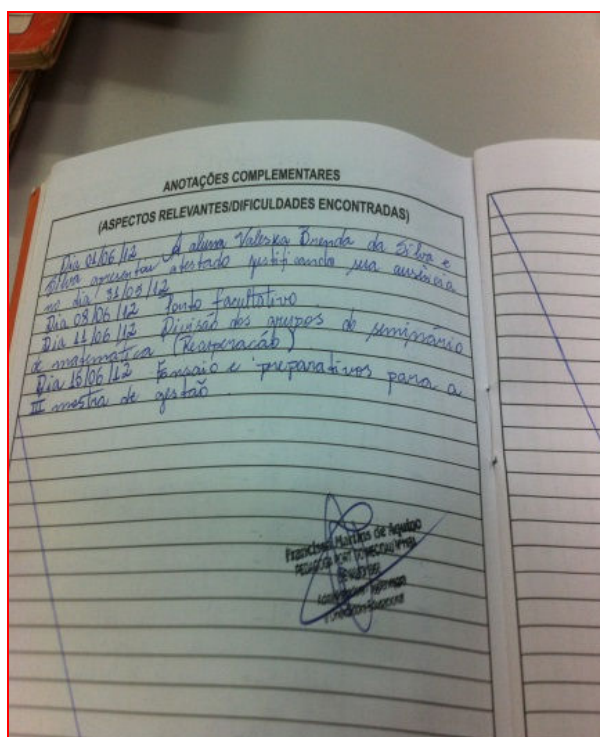 ANOTAÇÕES COMPLEMENTARES
(ASPECTOS RELEVANTES/DIFICULDADES ENCONTRADAS)
Dia 01/06/12 A aluna Valeska Brenda da Silva e
Silva apresentou atestado justificando sua ausência
no dia 31/05/12
Dia 08/06/12 Ponto facultativo.
Dia 11/06/12 Divisão dos grupos do seminário
de matemática (Recuperação)
Dia 15/06/12 Ensaio e preparativos para a
III mostra de gestão.
Francisca Martins de Aquino
PEDAGOGA